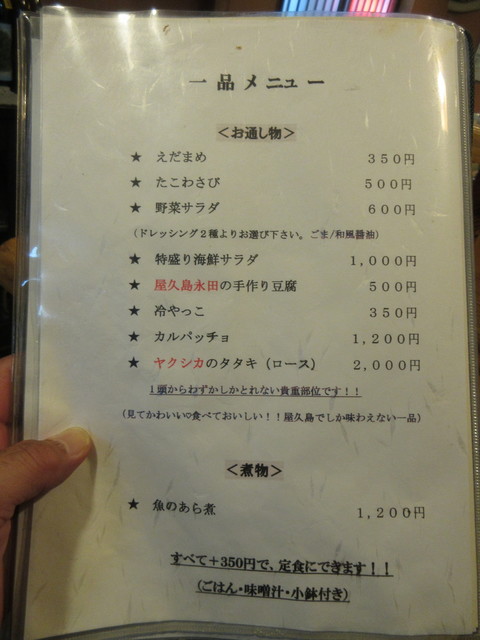 一品メニュー
＜お通し物＞
★ えだまめ ３５０円
★ たこわさび ５００円
★ 野菜サラダ ６００円
（ドレッシング２種よりお選び下さい。ごま/和風醤油）
★ 特盛り海鮮サラダ １,０００円
★ 屋久島永田の手作り豆腐 ５００円
★ 冷やっこ ３５０円
★ カルパッチョ １,２００円
★ ヤクシカのタタキ（ロース） ２,０００円
１頭からわずかしかとれない貴重部位です！！
（見てかわいい♡食べておいしい！！屋久島でしか味わえない一品）
＜煮物＞
★ 魚のあら煮 １,２００円
すべて＋350円で、定食にできます！！
（ごはん・味噌汁・小鉢付き）